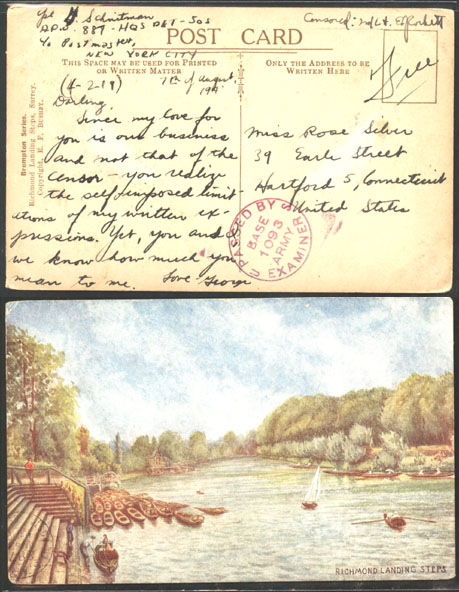 Pvt G Schnitman
A.P.O. 887 - HQS DET - SOS
c/o Postmaster,
NEW YORK CITY
Censored: 2nd Lt.
POST CARD
THIS SPACE MAY BE USED FOR PRINTED
OR WRITTEN MATTER
ONLY THE ADDRESS TO BE
WRITTEN HERE
Free
(4-2-19)
7th of August,
Darling,
Since my love for
you is our business
and not that of the
censor - you realize
the self-imposed limit-
ations of my written ex-
pressions. Yet, you and
we know how much you
mean to me. Love - George
Miss Rose Silver
39 Earle Street
Hartford 5, Connecticut
United States
PASSED BY
BASE
1093
ARMY
U S EXAMINER
Brompton Series.
Richmond Landing Steps, Surrey.
Copyright. E. F. Bushby.
RICHMOND LANDING STEPS